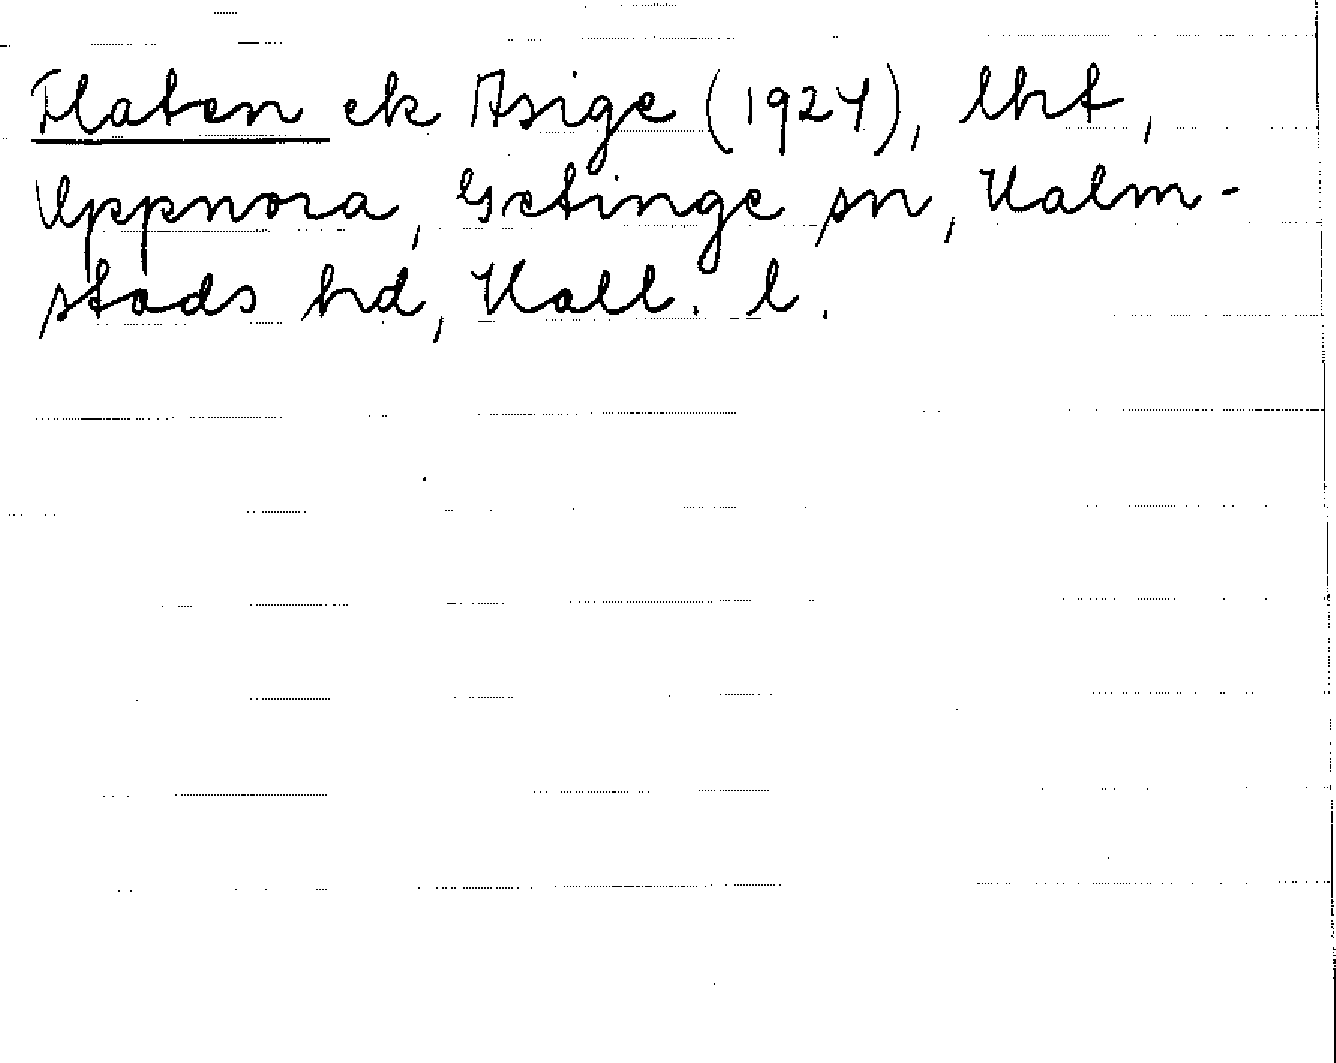 Flaten ek Asige (1924), lht,
Uppnora, Getinge sn, Halm-
stads hd, Hall. l.